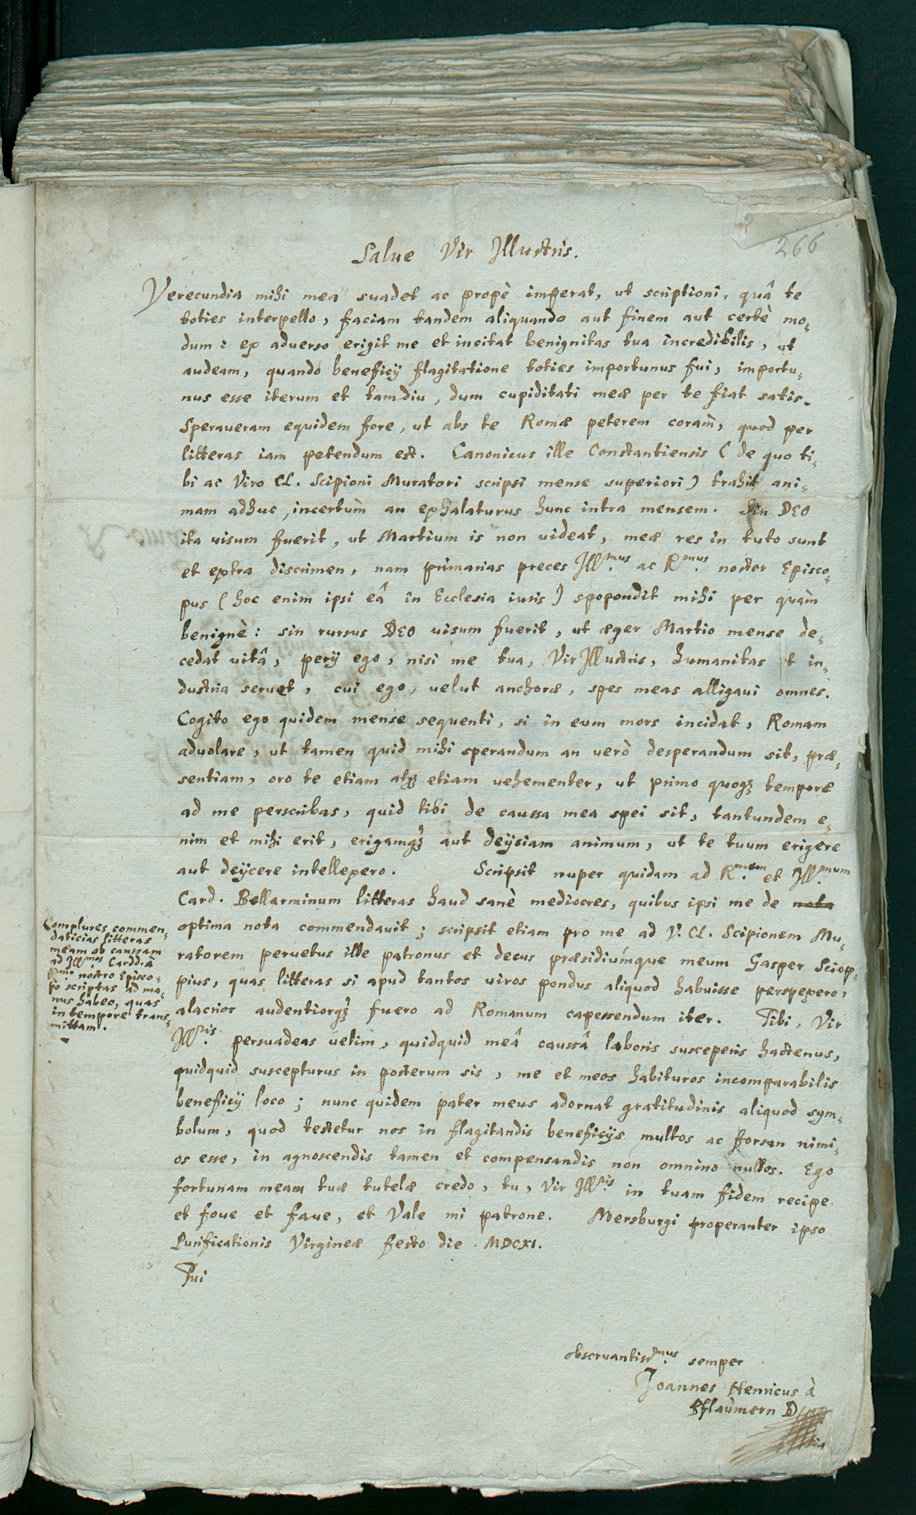 266
Salue Vir Illustris.
Verecundia mihi mea suadet ac propè imperat, ut scriptioni, quâ te
toties interpello, faciam tandem aliquando aut finem aut certè mo,
dum: ex aduerso erigit me et incitat benignitas tua incredibilis, ut
audeam, quando beneficij flagitatione toties importunus fui, importu,
nus esse iterum et tamdiu, dum cupiditati meæ per te fiat satis.
Speraueram equidem fore, ut abs te Romæ peterem coràm, quod per
litteras iam petendum est. Canonicus ille Constantiensis (de quo ti,
bi ac Viro Cl. Scipioni Muratori scripsi mense superiori) trahit ani,
mam adhuc, incertùm an exhalaturus hunc intra mensem. Sin DEO
ita uisum fuerit, ut Martium is non uideat, meæ res in tuto sunt
et extra discrimen, nam primarias preces Ill.mus ac R.mus noster Episco,
pus (hoc enim ipsi eâ in Ecclesia iuris) spopondit mihi per quàm
benignè: sin rursus DEO uisum fuerit, ut æger Martio mense de,
cedat uitâ, perij ego, nisi me tua, Vir Illustris, humanitas et in,
dustria seruet, cui ego, uelut anchoræ, spes meas alligaui omnes.
Cogito ego quidem mense sequenti, si in eum mors incidat, Romam
aduolare, ut tamen quid mihi sperandum an uerò desperandum sit, præ,
sentiam, oro te etiam atq; etiam uehementer, ut primo quoq; tempore
ad me perscribas, quid tibi de caussa mea spei sit, tantundem e,
nim et mihi erit, erigamq; aut deijciam animum, ut te tuum erigere
aut deijcere intellexero. Scripsit nuper quidam ad R.mum et Ill.mum
Card. Bellarminum litteras haud sanè mediocres, quibus ipsi me de nota
optima nota commendauit; scripsit etiam pro me ad V. Cl. Scipionem Mu,
ratorem peruetus ille patronus et decus præsidiúmque meum Gasper Sciop,
pius, quas litteras si apud tantos uiros pondus aliquod habuisse perspexero,
alacrior audentiorq; fuero ad Romanum capessendum iter. Tibi, Vir
Ill.ris persuadeas uelim, quidquid meâ caussâ laboris susceperis hactenus,
quidquid suscepturus in posterum sis, me et meos habituros incomparabilis
beneficij loco; nunc quidem pater meus adornat gratitudinis aliquod sym,
bolum, quod testetur nos in flagitandis beneficijs multos ac forsan nimi,
os esse, in agnoscendis tamen et compensandis non omnino nullos. Ego
fortunam meam tuæ tutelæ credo, tu, Vir Ill.ris in tuam fidem recipe
et foue et faue, et Vale mi patrone. Mersburgi properanter ipso
Purificationis Virgineæ festo die. MDCXI.
Tui
Complures commen,
daticias litteras
meam ob caussam
ad Ill.mos Card. à
R.mo nostro Episco,
po scriptas ad ma,
nus habeo, quas
in tempore trans,
mittam.
obseruantiss.mus semper
Joannes Henricus à
Pflaumern D